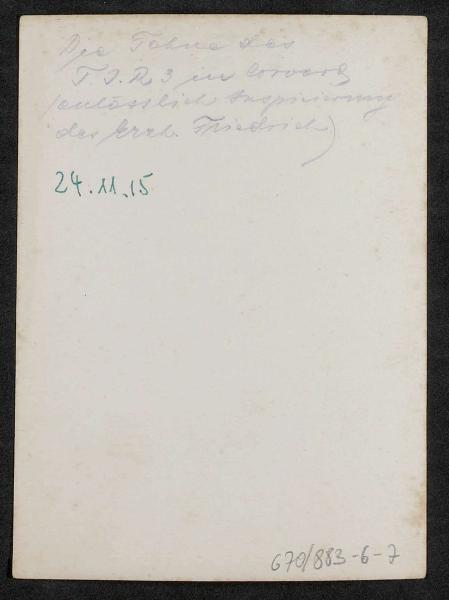 Die Fahne des
T.J.R 3 in Corvara
(anlässlich Inspizierung
des Erzh. Friedrich)
24.11.15
670/883-6-7